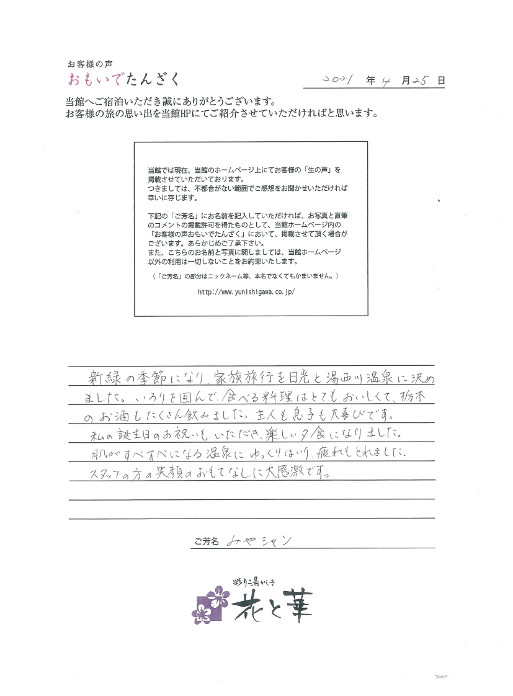 お客様の声
おもいでたんざく
2021 年 4 月 25 日
当館へご宿泊いただき誠にありがとうございます。
お客様の旅の思い出を当館HPにてご紹介させていただければと思います。
当館では現在、当館のホームページ上にてお客様の「生の声」を
掲載させていただいております。
つきましては、不都合がない範囲でご感想をお聞かせいただければ
幸いに存じます。
下記の「ご芳名」にお名前を記入していただければ、お写真と直筆
のコメントの掲載許可を得たものとして、当館ホームページ内の
「お客様の声おもいでたんざく」において、掲載させて頂く場合が
ございます。あらかじめご了承下さい。
また、こちらのお名前と写真に関しましては、当館ホームページ
以外の利用は一切しないことをお約束いたします。
（「ご芳名」の部分はニックネーム等、本名でなくてもかまいません。）
http://www.yunishigawa.co.jp/
新緑の季節になり、家族旅行を日光と湯西川温泉に決め
ました。いろりを囲んで、食べる料理はとてもおいしくて、栃木
のお酒もたくさん飲みました。主人も息子も大喜びです。
私の誕生日のお祝いもいただき、楽しい夕食になりました。
肌がすべすべになる温泉にゆっくりはいり、疲れもとれました。
スタッフの方の笑顔のおもてなしに大感激です。
ご芳名 みやシャン
花と華